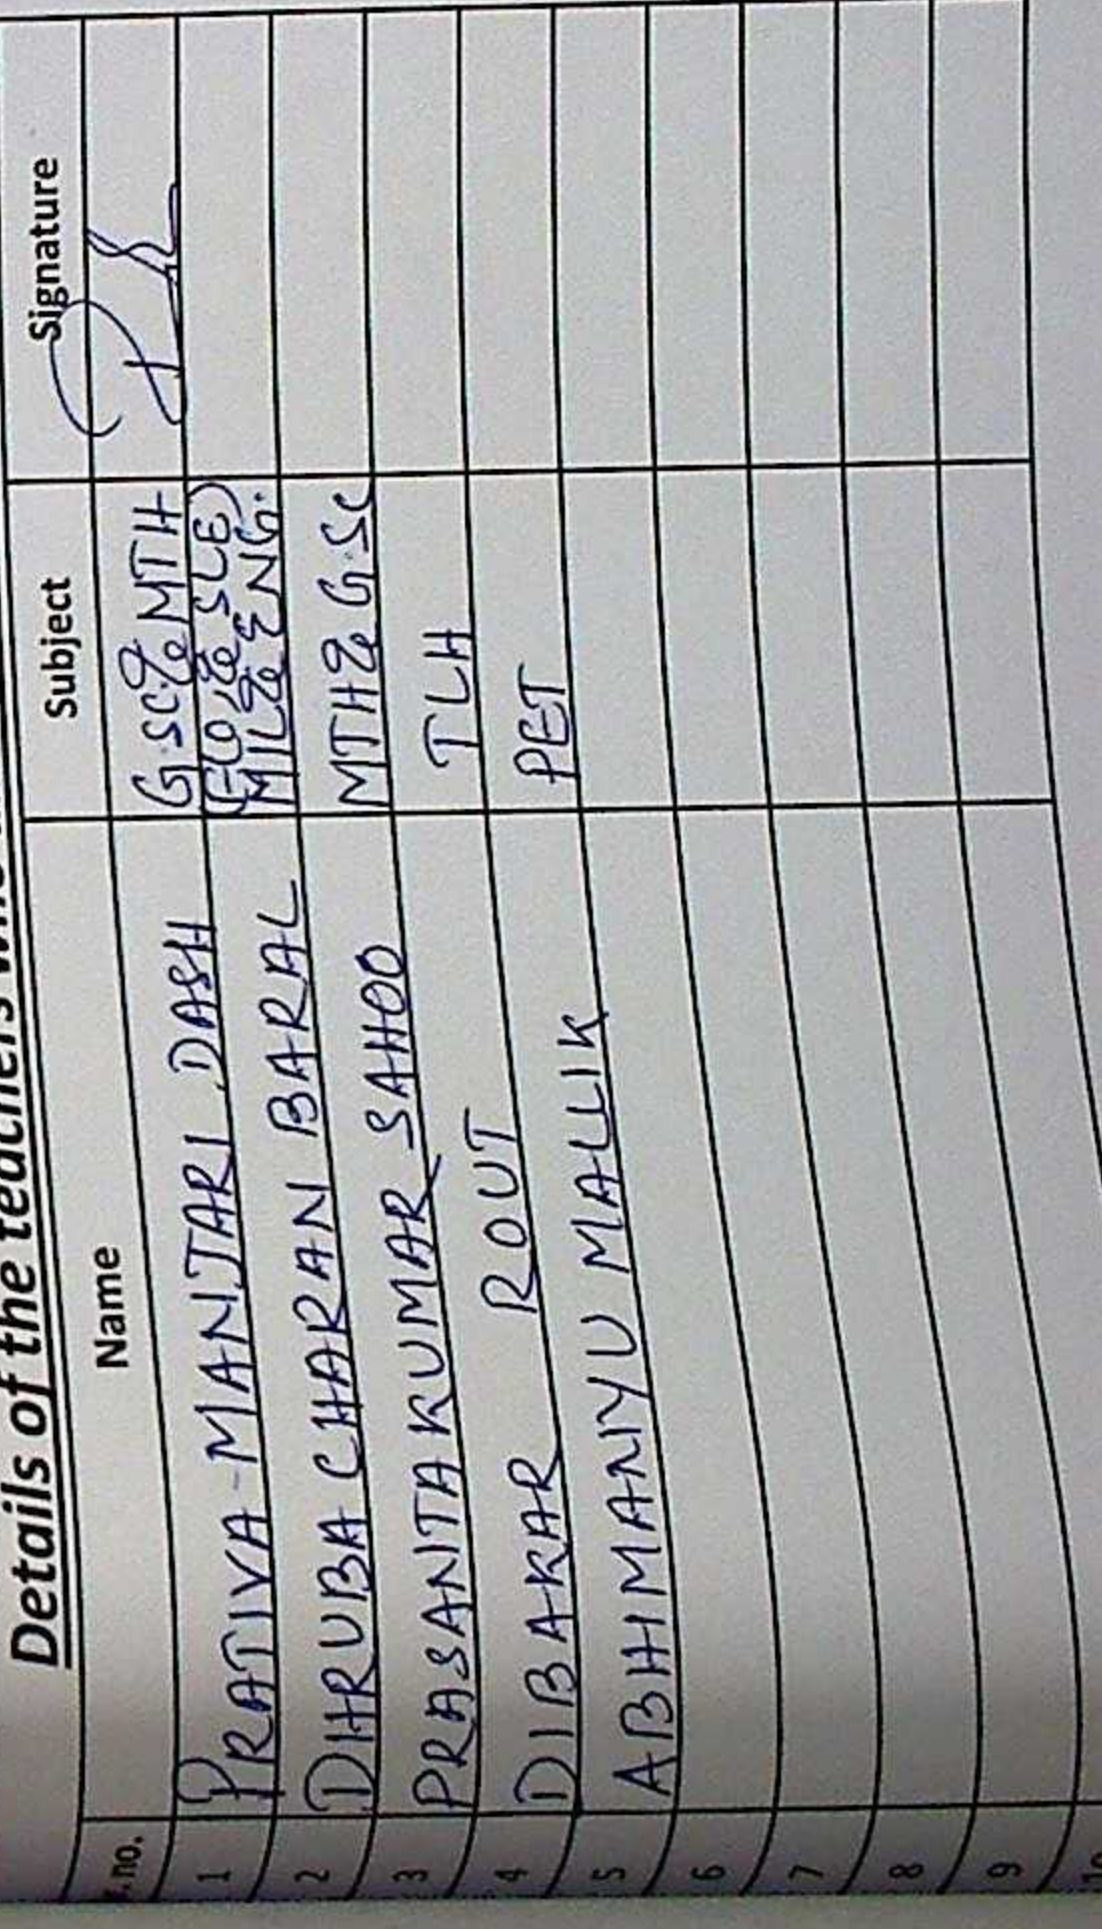 Details of the teachers
.no. Name Subject Signature
1 PRATIVA MANJARI DASH G.SC & MTH
2 DHRUBA CHARAN BARAL MIL & ENG.
3 PRASANTA KUMAR SAHOO MTH & G.SC
4 DIBAKAR ROUT TLH
5 ABHIMANYU MALLIK PET
6
7
8
9
10